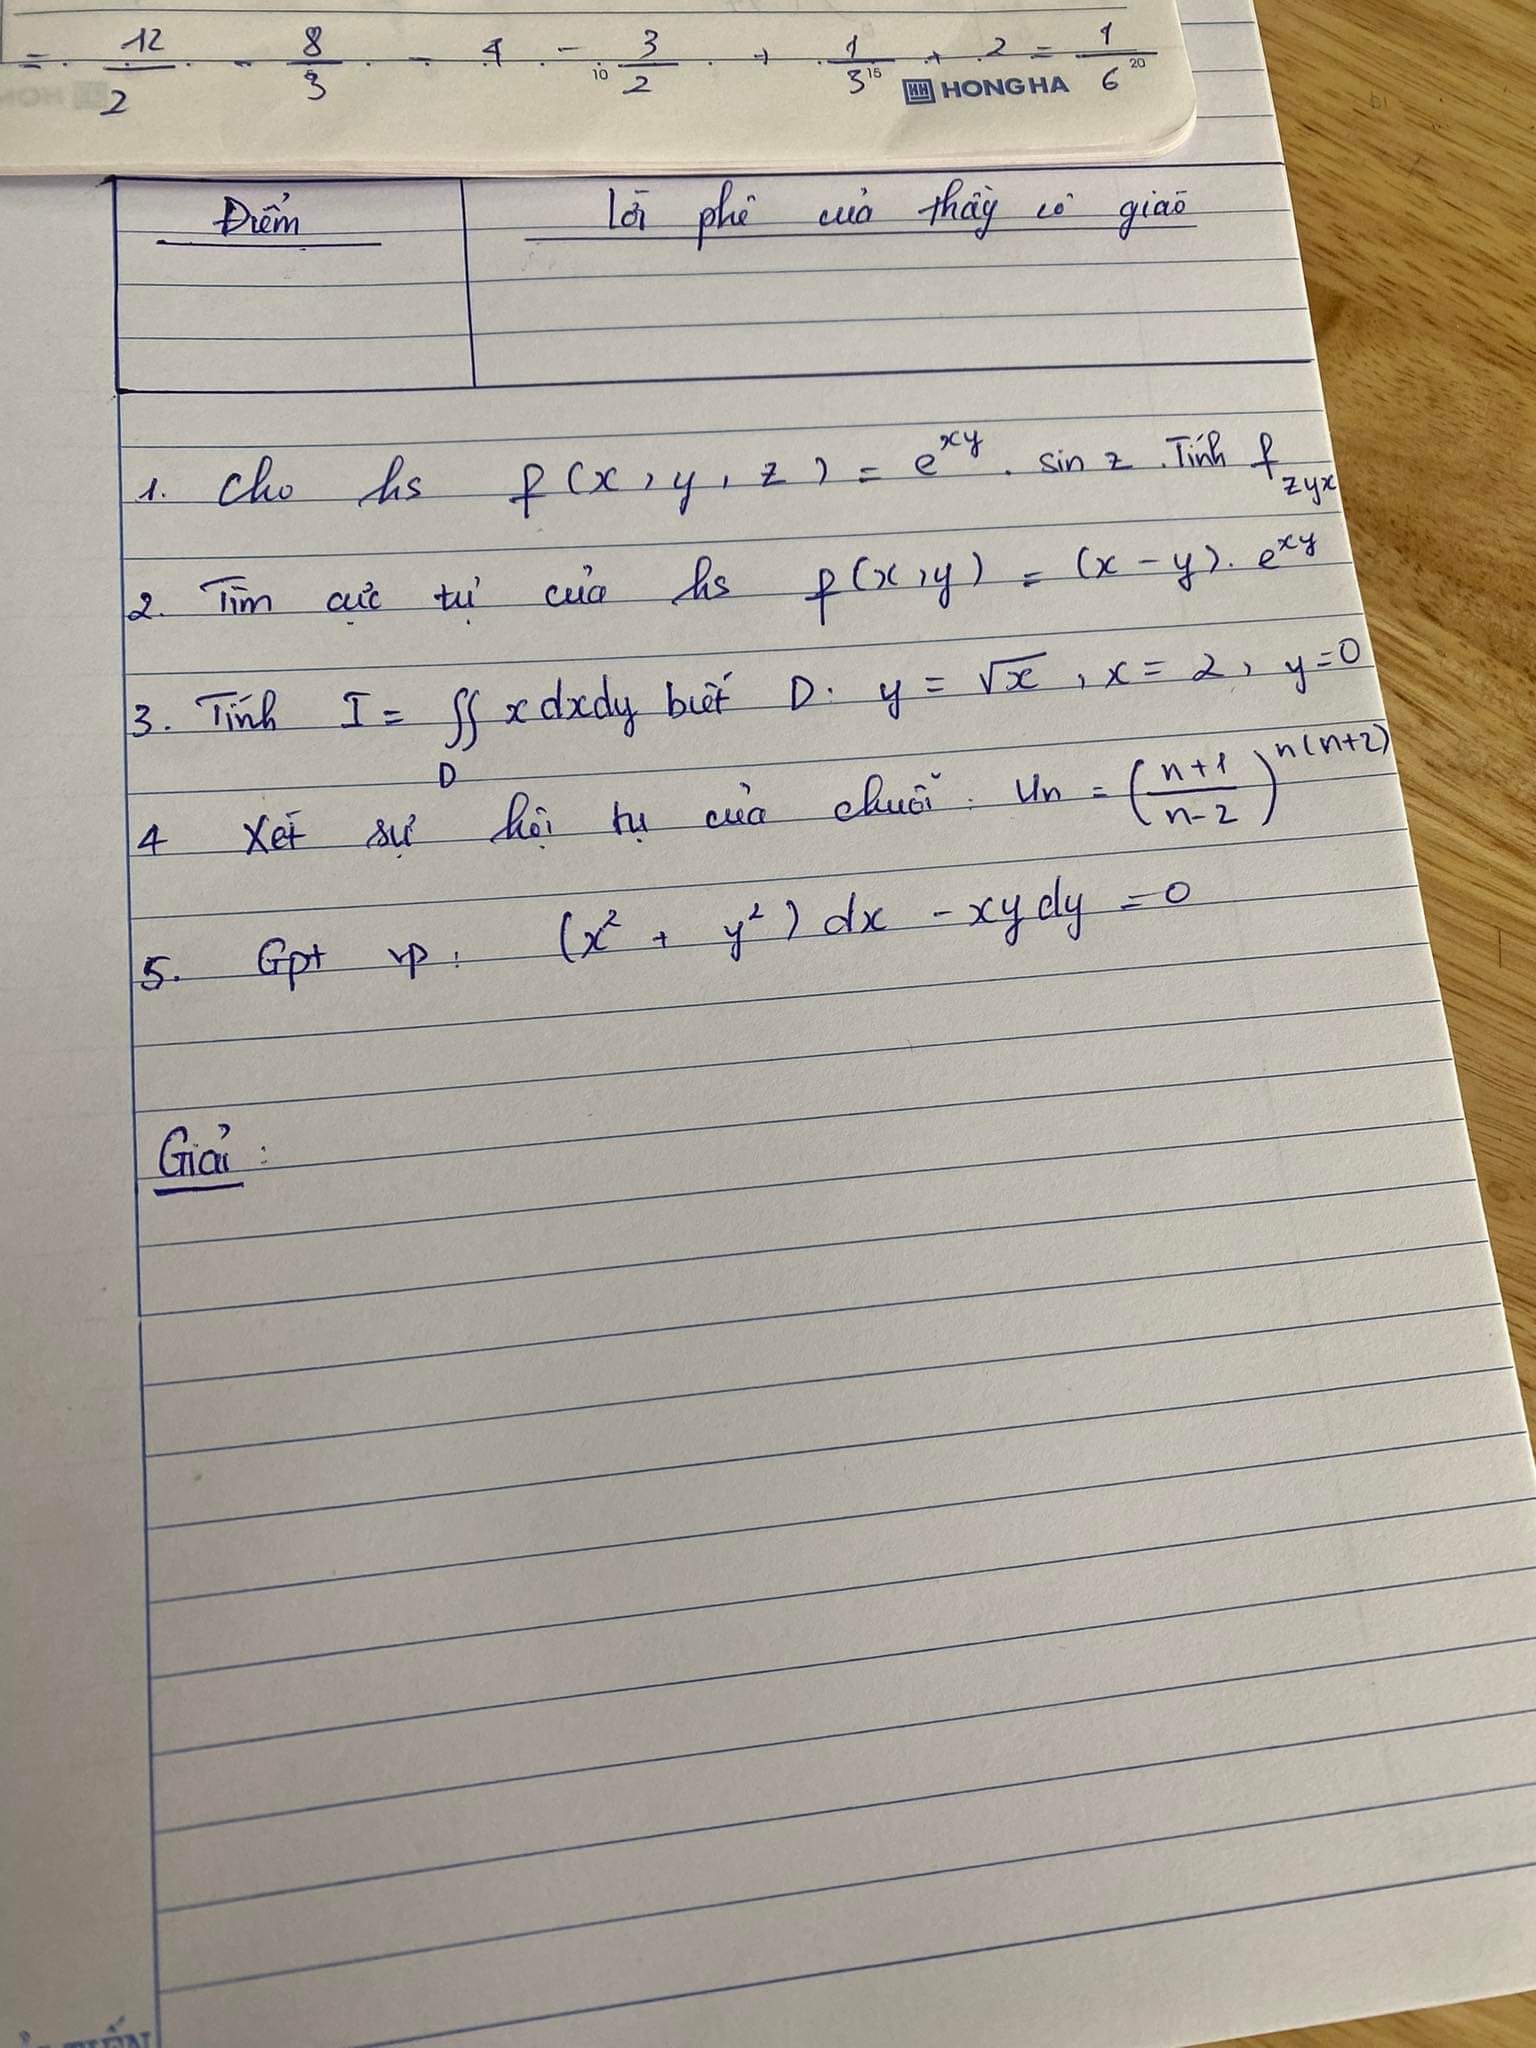 = 12/2 - 8/3 - 4 - 3/2 + 1/3 + 2 = 1/6
10 15 20
HONG HA
Điểm
Lời phê của thầy cô giáo
1. Cho hs f(x, y, z) = e^{xy} . sin z . Tính f_{zyx}
2. Tìm cực trị của hs f(x,y) = (x - y). e^{xy}
3. Tính I = ∬_D x dxdy biết D: y = √x , x = 2, y = 0
4 Xét sự hội tụ của chuỗi. Un = ((n+1)/(n-2))^{n(n+2)}
5. Gpt vp: (x² + y²) dx - xy dy = 0
Giải :